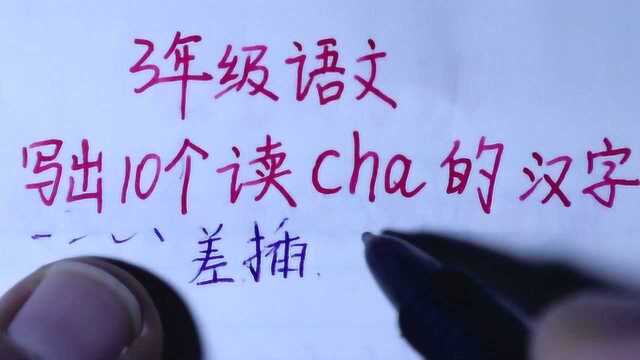 3年级语文
写出10个读cha的汉字
差.插.